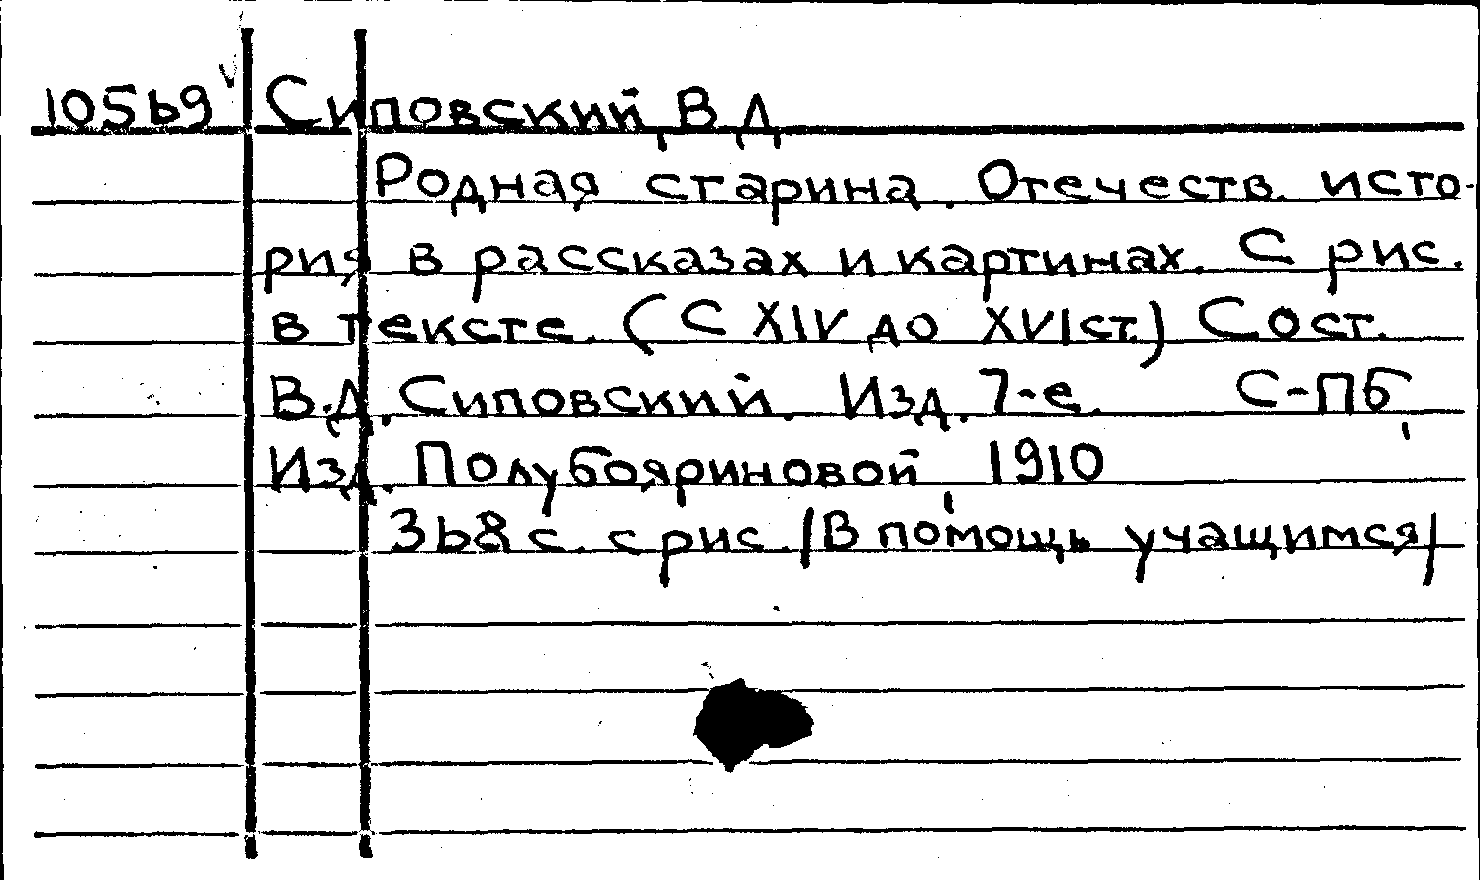 10569 Сиповский, В Д
Родная старина. Отечеств. исто-
рия в рассказах и картинах. С рис.
в тексте. (С XIV до XVI ст.) Сост.
В.Д. Сиповский. Изд. 7-е. С-Пб,
Изд. Полубояриновой, 1910
368 с. с рис. /В помощь учащимся/